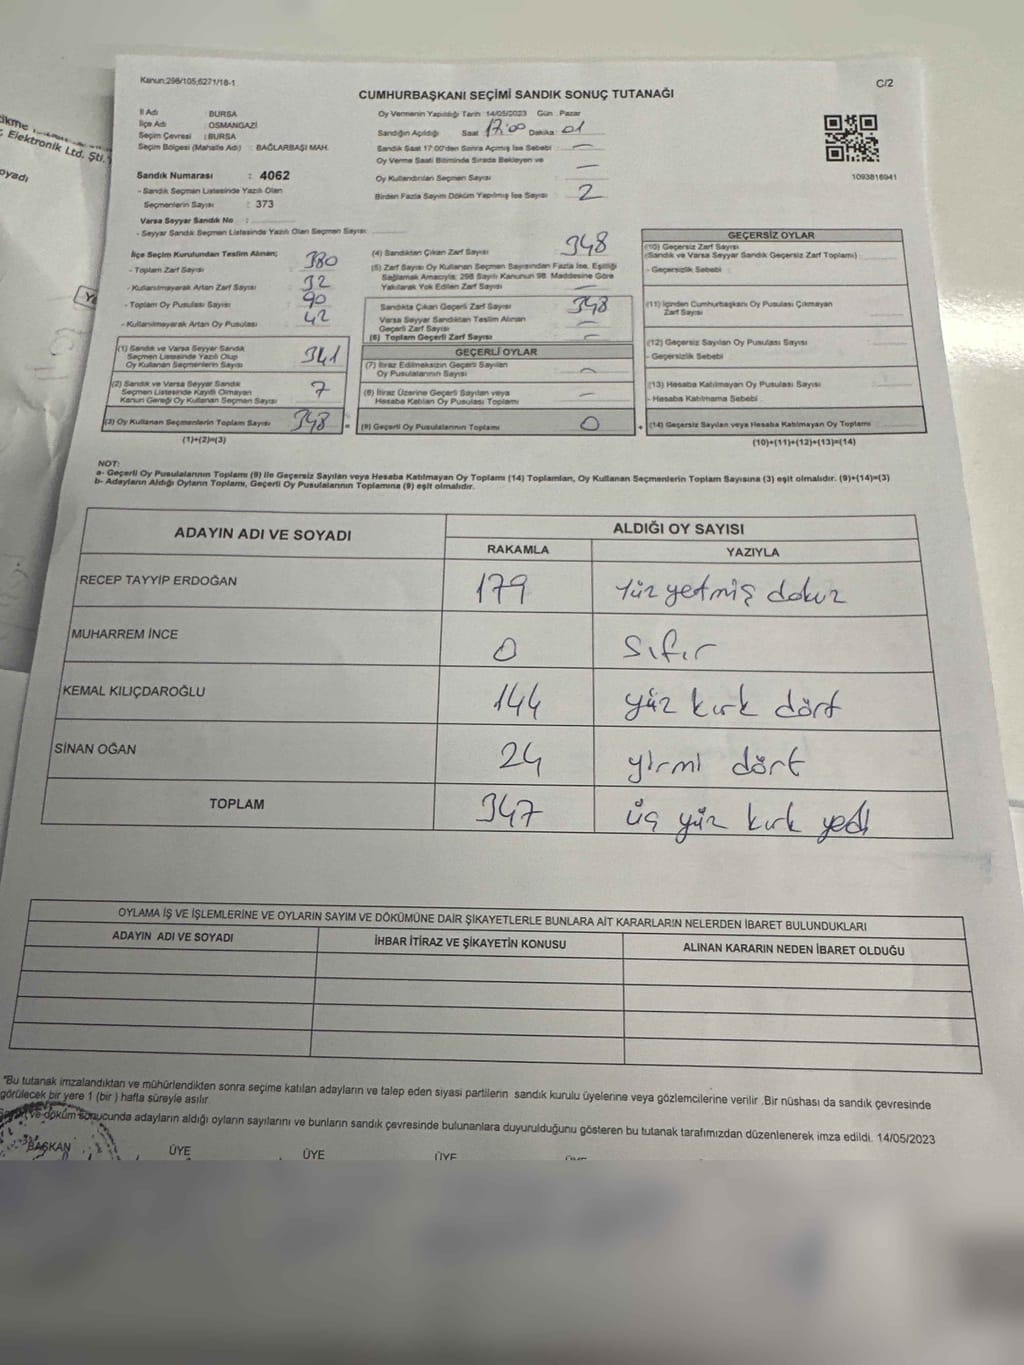 Kanun:298/105;6271/18-1
C/2
CUMHURBAŞKANI SEÇİMİ SANDIK SONUÇ TUTANAĞI
İl Adı : BURSA
İlçe Adı : OSMANGAZİ
Seçim Çevresi : BURSA
Seçim Bölgesi (Mahalle Adı) : BAĞLARBAŞI MAH.
Sandık Numarası : 4062
- Sandık Seçmen Listesinde Yazılı Olan
Seçmenlerin Sayısı : 373
Varsa Seyyar Sandık No :
- Seyyar Sandık Seçmen Listesinde Yazılı Olan Seçmen Sayısı:
Oy Vermenin Yapıldığı Tarih 14/05/2023 Gün : Pazar
Sandığın Açıldığı Saat 17:00 Dakika: 01
Sandık Saat 17:00'den Sonra Açımış İse Sebebi : —
Oy Verme Saati Bitiminde Sırada Bekleyen ve
Oy Kullandırılan Seçmen Sayısı —
Birden Fazla Sayım Döküm Yapılmış İse Sayısı 2
1093816941
İlçe Seçim Kurulundan Teslim Alınan;
- Toplam Zarf Sayısı 380
- Kullanılmayarak Artan Zarf Sayısı 32
- Toplam Oy Pusulası Sayısı 90
- Kullanılmayarak Artan Oy Pusulası 42
(1) Sandık ve Varsa Seyyar Sandık
Seçmen Listesinde Yazılı Olup
Oy Kullanan Seçmenlerin Sayısı 341
(2) Sandık ve Varsa Seyyar Sandık
Seçmen Listesinde Kayıtlı Olmayan
Kanun Gereği Oy Kullanan Seçmen Sayısı 7
(3) Oy Kullanan Seçmenlerin Toplam Sayısı 348
(1)+(2)=(3)
(4) Sandıktan Çıkan Zarf Sayısı 348
(5) Zarf Sayısı Oy Kullanan Seçmen Sayısından Fazla İse, Eşitliği
Sağlamak Amacıyla; 298 Sayılı Kanunun 98. Maddesine Göre
Yakılarak Yok Edilen Zarf Sayısı —
Sandıkta Çıkan Geçerli Zarf Sayısı 348
Varsa Seyyar Sandıktan Teslim Alınan
Geçerli Zarf Sayısı —
(6) Toplam Geçerli Zarf Sayısı —
GEÇERLİ OYLAR
(7) İtiraz Edilmeksizin Geçerli Sayılan
Oy Pusulalarının Sayısı —
(8) İtiraz Üzerine Geçerli Sayılan veya
Hesaba Katılan Oy Pusulası Toplamı —
(9) Geçerli Oy Pusulalarının Toplamı 0
GEÇERSİZ OYLAR
(10) Geçersiz Zarf Sayısı
(Sandık ve Varsa Seyyar Sandık Geçersiz Zarf Toplamı)
- Geçersizlik Sebebi :
(11) İçinden Cumhurbaşkanı Oy Pusulası Çıkmayan
Zarf Sayısı
(12) Geçersiz Sayılan Oy Pusulası Sayısı
- Geçersizlik Sebebi
(13) Hesaba Katılmayan Oy Pusulası Sayısı
- Hesaba Katılmama Sebebi :
(14) Geçersiz Sayılan veya Hesaba Katılmayan Oy Toplamı
(10)+(11)+(12)+(13)=(14)
NOT:
a- Geçerli Oy Pusulalarının Toplamı (9) ile Geçersiz Sayılan veya Hesaba Katılmayan Oy Toplamı (14) Toplamları, Oy Kullanan Seçmenlerin Toplam Sayısına (3) eşit olmalıdır. (9)+(14)=(3)
b- Adayların Aldığı Oyların Toplamı, Geçerli Oy Pusulalarının Toplamına (9) eşit olmalıdır.
ADAYIN ADI VE SOYADI
ALDIĞI OY SAYISI
RAKAMLA YAZIYLA
RECEP TAYYİP ERDOĞAN 179 Yüz yetmiş dokuz
MUHARREM İNCE 0 Sıfır
KEMAL KILIÇDAROĞLU 144 yüz kırk dört
SİNAN OĞAN 24 yirmi dört
TOPLAM 347 üç yüz kırk yedi
OYLAMA İŞ VE İŞLEMLERİNE VE OYLARIN SAYIM VE DÖKÜMÜNE DAİR ŞİKAYETLERLE BUNLARA AİT KARARLARIN NELERDEN İBARET BULUNDUKLARI
ADAYIN ADI VE SOYADI İHBAR İTİRAZ VE ŞİKAYETİN KONUSU ALINAN KARARIN NEDEN İBARET OLDUĞU
"Bu tutanak imzalandıktan ve mühürlendikten sonra seçime katılan adayların ve talep eden siyasi partilerin sandık kurulu üyelerine veya gözlemcilerine verilir .Bir nüshası da sandık çevresinde
görülecek bir yere 1 (bir ) hafta süreyle asılır
ve döküm sonucunda adayların aldığı oyların sayılarını ve bunların sandık çevresinde bulunanlara duyurulduğunu gösteren bu tutanak tarafımızdan düzenlenerek imza edildi. 14/05/2023
BAŞKAN ÜYE ÜYE ÜYE
Elektronik Ltd. Şti.
oyadı